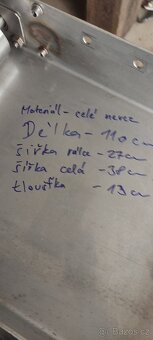 Materiál - celé nerez
Délka - 110cm
šířka rálce - 27cm
šířka celá - 38cm
tloušťka - 13cm
© Bazos.cz